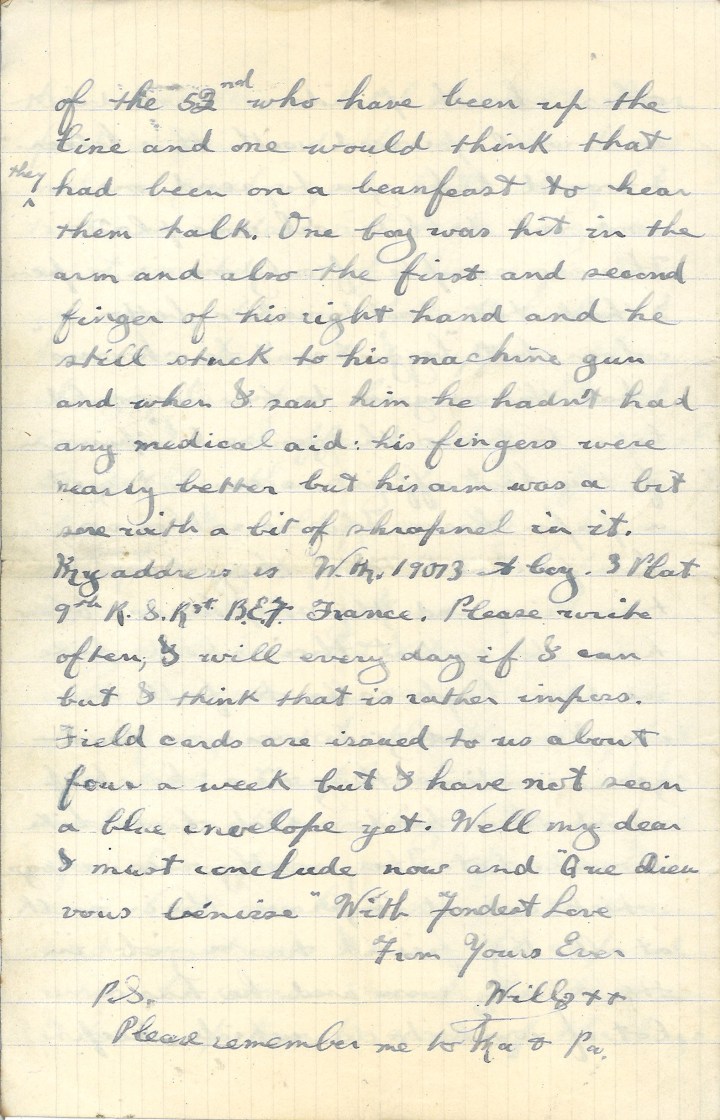 of the 52nd who have been up the
line and one would think that
they
had been on a beanfeast to hear
them talk. One boy was hit in the
arm and also the first and second
finger of his right hand and he
still stuck to his machine gun
and when I saw him he hadn't had
any medical aid: his fingers were
nearly better but his arm was a bit
sore with a bit of shrapnel in it.
My address is W.H. 19013 A Coy. 3 Plat
9th R. S. Rgt B.E.F France. Please write
often, I will every day if I can
but I think that is rather imposs.
Field cards are issued to us about
four a week but I have not seen
a blue envelope yet. Well my dear
I must conclude now and "Que Dieu
vous bénisse" With Fondest Love
From Yours Ever
P.S. Will xx
Please remember me to Ma & Pa.